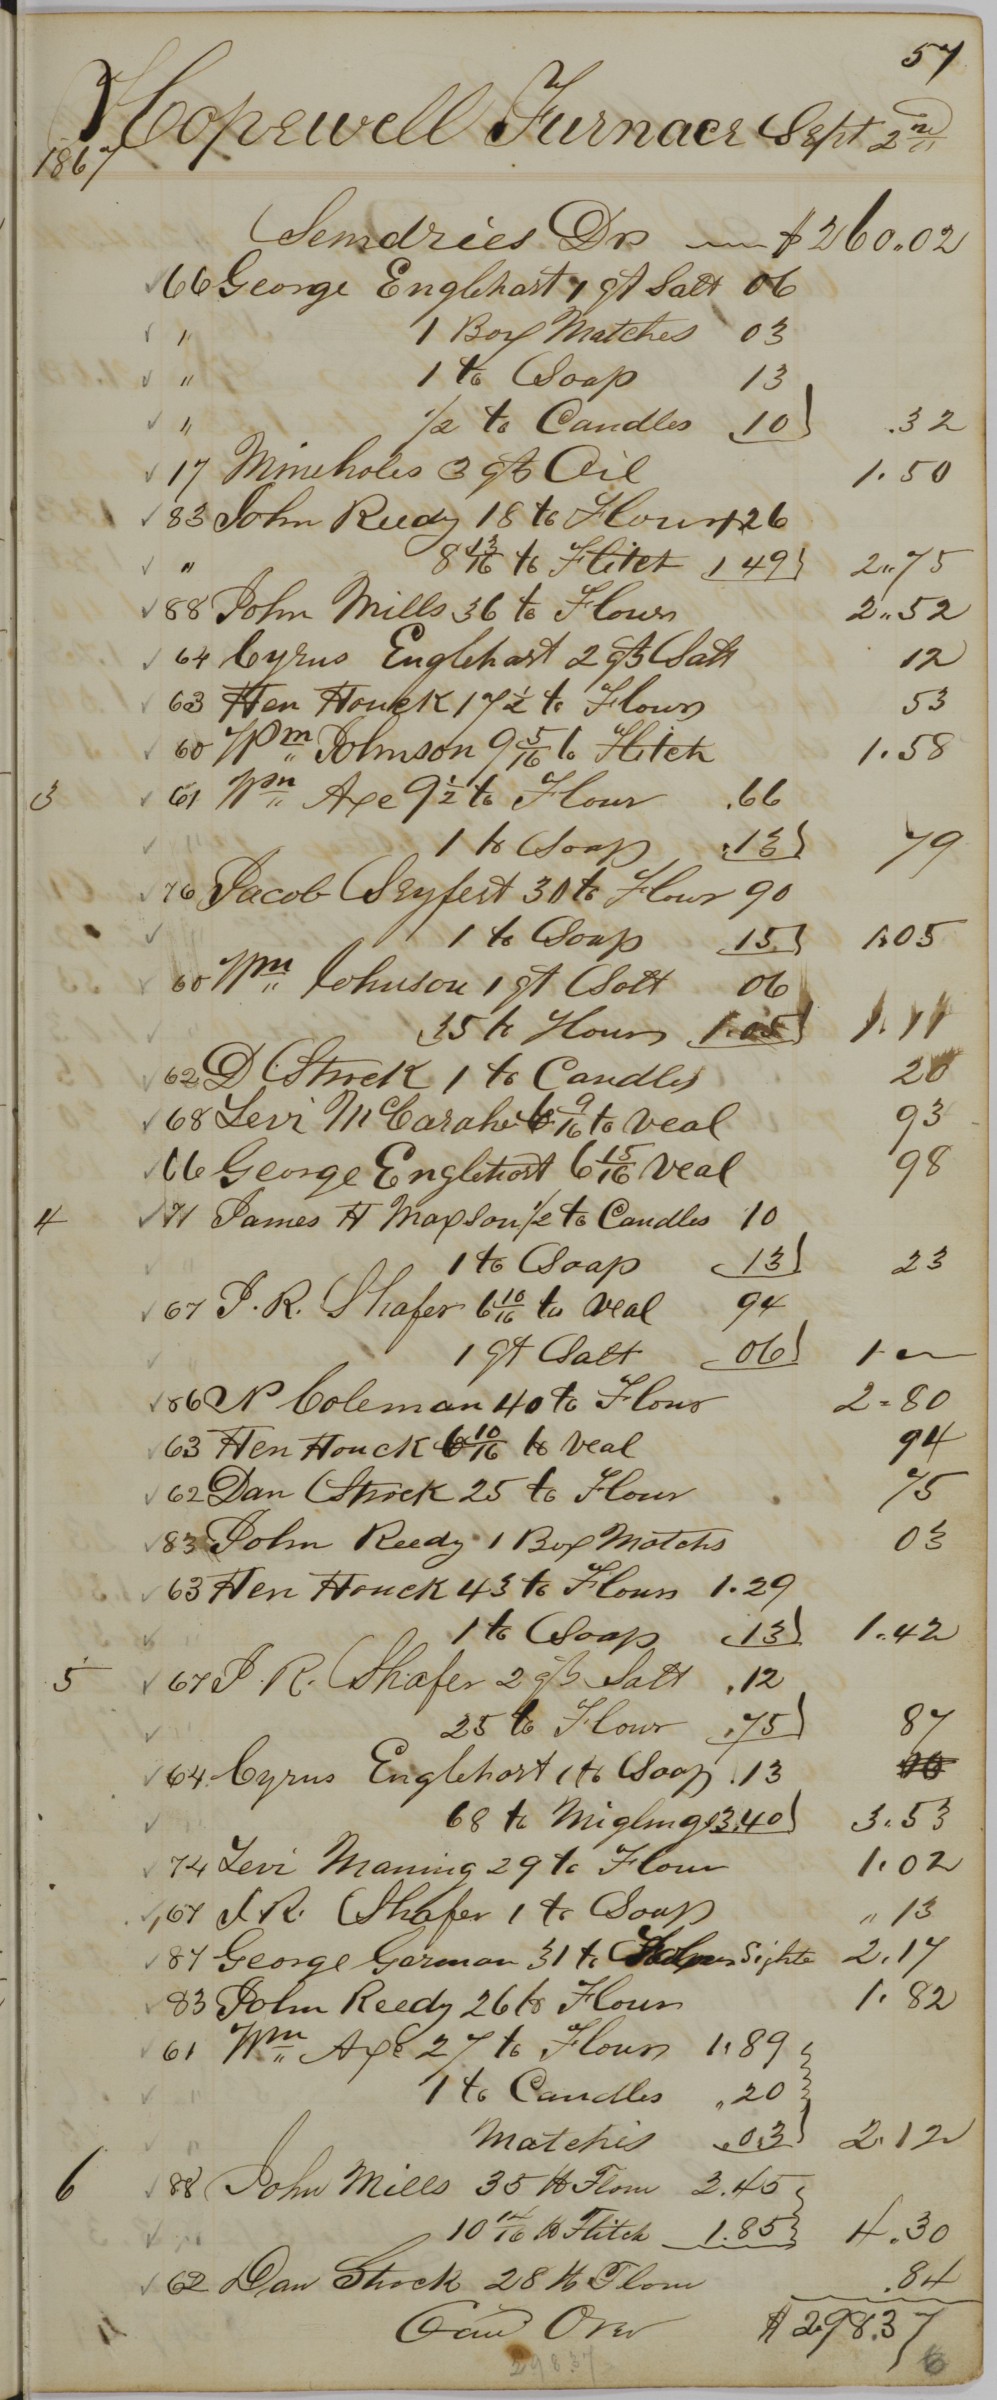 57
Hopewell Furnace Sept 2nd
1867
Sundries Drs $260.02
66 George Englehart 1 qt Salt 06
" 1 Box Matches 03
" 1 lb Soap 13
" 1/2 lb Candles 10 .32
17 Mineholes 3 qts Oil 1.50
83 John Reedy 18 lb Flour 1.26
" 8 13/16 lb Flitch 1 49 2.75
88 John Mills 36 lb Flour 2.52
64 Cyrus Englehart 2 qts Salt 12
63 Hen Houck 17 1/2 lb Flour 53
60 Wm Johnson 9 5/16 lb Flitch 1.58
3 61 Wm Axe 9 1/2 lb Flour .66
1 lb Soap .13 79
76 Jacob Seyfert 30 lb Flour 90
1 lb Soap 15 1.05
60 Wm Johnson 1 qt Salt 06
35 lb Flour 1.05 1.11
62 D Strock 1 lb Candles 20
68 Levi McCarahe 6 9/16 lb Veal 93
66 George Englehart 6 15/16 Veal 98
4 71 James H Maxson 1/2 lb Candles 10
1 lb Soap 13 23
67 J. R. Shafer 6 10/16 lb Veal 94
1 qt Salt 06 1 —
86 N Coleman 40 lb Flour 2=80
63 Hen Houck 6 10/16 lb Veal 94
62 Dan Strock 25 lb Flour 75
83 John Reedy 1 Box Matchs 03
63 Hen Houck 43 lb Flour 1.29
1 lb Soap 13 1.42
5 67 J. R. Shafer 2 qts Salt .12
25 lb Flour .75 87
64 Cyrus Englehart 1 lb Soap .13
68 lb Miglings 3.40 3.53
74 Levi Maning 29 lb Flour 1.02
67 J R. Shafer 1 lb Soap " 13
87 George German 31 lb Sights 2.17
83 John Reedy 26 lb Flour 1.82
61 Wm Axe 27 lb Flour 1.89
1 lb Candles .20
Matches .03 2.12
6 88 John Mills 35 lb Flour 2.45
10 14/16 lb Flitch 1.85 4.30
62 Dan Strock 28 lb Flour .84
Card Over $298.37
29837